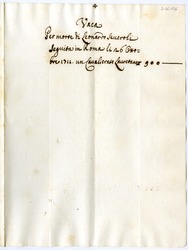 Vaca
Per morte di Leonardo Severoli
seguita in Roma li 26 Otto=
bre 1711. un Cavalierato Lauretano 900